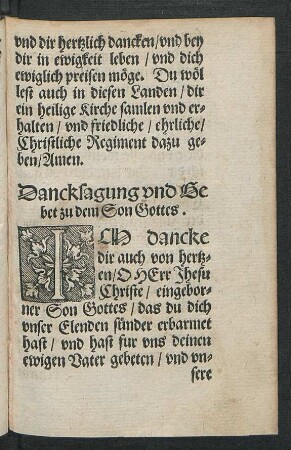 vnd dir hertzlich dancken/vnd bey
dir in ewigkeit leben / vnd dich
ewiglich preisen möge. Du wöl
lest auch in diesen Landen/ dir
ein heilige Kirche samlen vnd er-
halten / vnd friedliche / ehrliche/
Christliche Regiment dazu ge-
ben/Amen.
Dancksagung vnd Ge
bet zu dem Son Gottes.
ICH dancke
dir auch von hertz-
en/O HErr Jhesu
Christe / eingebor-
ner Son Gottes / das du dich
vnser Elenden sünder erbarmet
hast / vnd hast fur vns deinen
ewigen Vater gebeten / vnd vn-
sere